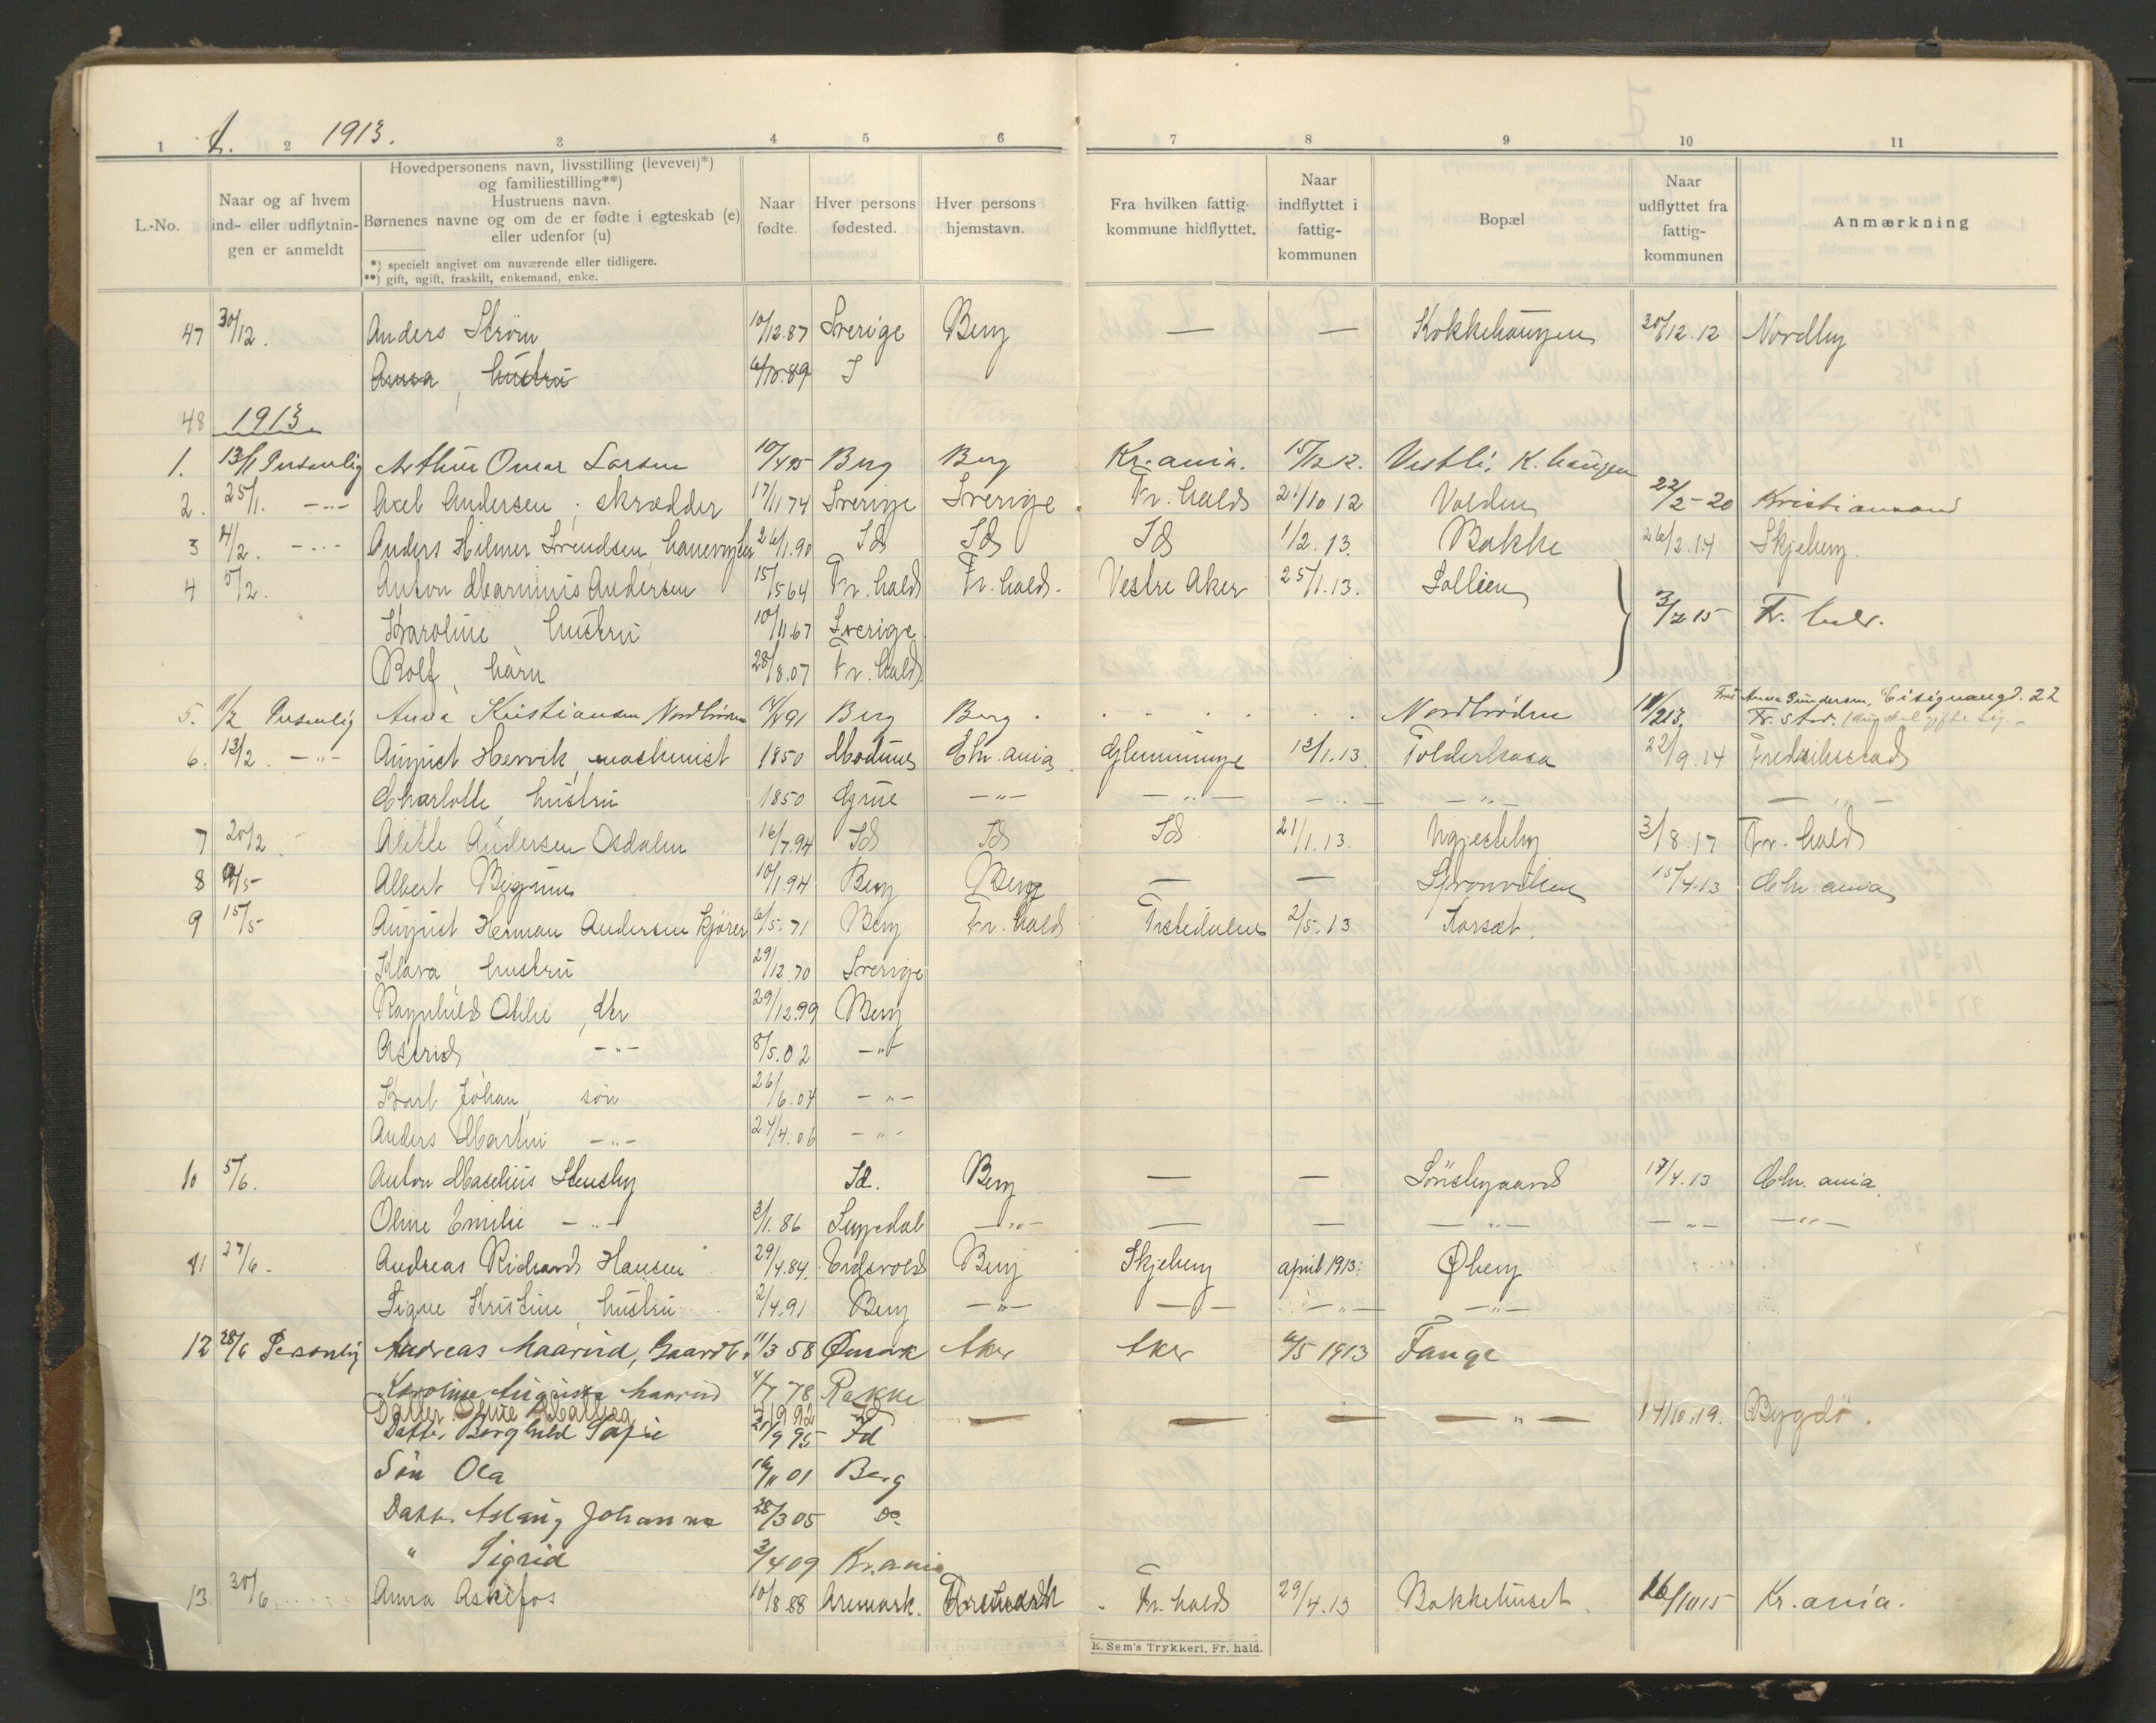 A. 1913.
1 2 3 4 5 6 7 8 9 10 11
L.-No.
Naar og af hvem
ind- eller udflytnin-
gen er anmeldt
Hovedpersonens navn, livsstilling (levevei)*)
og familiestilling**)
Hustruens navn.
Børnenes navne og om de er fødte i egteskab (e)
eller udenfor (u)
*) specielt angivet om nuværende eller tidligere.
**) gift, ugift, fraskilt, enkemand, enke.
Naar
fødte.
Hver persons
fødested.
Hver persons
hjemstavn.
Fra hvilken fattig-
kommune hidflyttet.
Naar
indflyttet i
fattig-
kommunen
Bopæl
Naar
udflyttet fra
fattig-
kommunen
Anmærkning
47 30/12. Anders Strøm 10/12.87 Sverige Berg — — Kokkehaugen 30/12.12 Nordby
Anna, hustru
48 1913
1. 13/1 Personlig Arthur Omar Larsen 10/4 95 Berg Berg Kr.ania. 15/12 12. Vestli, K. haugen
2. 25/1. —"— Axel Andersen, skrædder 17/11 74 Sverige Sverige Fr. hald 21/10 12 Volden 22/2-20 Kristiansand
3 4/2. —"— Anders Hilmer Svendsen 26/1.90 Id Id Id 1/2.13. Bakke 26/2.14 Skjeberg.
4 5/2. Anton Marinius Andersen 15/5 64 Fr. hald Fr. hald. Vestre Aker 25/1.13. Sollien 3/2 15 Fr. hald.
Karoline hustru 10/11 67 Sverige
Rolf, barn 28/8.07 Fr. hald
5. 11/2 Personlig Anna Kristiansen Nordbrøden Berg Berg. Nordbrøden Fru Anna Gundersen, 22
Fr.stad.
6. 13/2. —"— August Hervik, maskinist 1850 Modum Chr.ania Glemminge 13/1.13. Tolderkasa 22/9.14 Fredrikstad
Charlotte, hustru 1850 Grue —"— —"— —"— —"— —"—
7 20/2 Alette Andersen Osdalen 16/7.94 Id Id Id 21/1.13. Ugjesteby 3/8.17 Fr. hald
8 9/5 Albert 10/1.94 Berg Berg — — Sponviken 15/4.13 Chr.ania
9 15/5 August Herman Andersen kjører 6/5.71 Berg Fr. hald Tistedalen 2/5.13 Korsæt.
Klara hustru 29/12.70 Sverige
Ragnhild Otilie, dtr 29/12.99 Berg
Astrid —"— 8/5.02 —"—
Karl Johan, søn 26/6.04 —"—
Anders Martin —"— 24/4.06 —"—
10 5/6. Anton Maselius Stensby Id. Berg — — Sørsbygaard 17/4.13 Chr.ania
Oline Emilie —"— 3/1.86 —"— — — —"— —"— —"—
11 27/6. Andreas Richard Hansen 29/4.84. Eidsvold Berg Skjeberg april 1913. Øberg
Signe Kristine, hustru 2/4.91 Berg —"— —"— —"— —"—
12 28/6 Personlig Andreas Maarud, Gaardbr. 11/3 58 Ømark Aker Aker 6/5 1913 Tange
Karoline Augusta Maarud 4/7 78 Rakke
Datter Oline
Datter Borghild Sofie 21/9 95 Id — — — —"— 14/10.19. Bygdø.
Søn Ola 01 Berg
Datter Aslaug Johanna 28/3 05 Do
" Sigrid 3/4 09 Kr.ania
13. 30/6 Anna Askefos 10/8.88 Aremark. Fr. hald 29/4.13 Bakkehuset. 26/10 15 Kr.ania.
E. Sem's Trykkeri, Fr. hald.